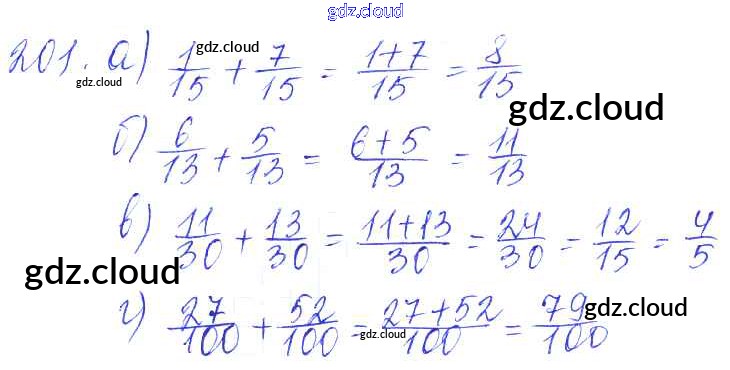 gdz.cloud
201. а) 1/15 + 7/15 = 1+7/15 = 8/15
gdz.cloud
gdz.cloud
gdz.cloud
б) 6/13 + 5/13 = 6+5/13 = 11/13
в) 11/30 + 13/30 = 11+13/30 = 24/30 = 12/15 = 4/5
gdz.cloud
г) 27/100 + 52/100 = 27+52/100 = 79/100
gdz.cloud
gdz.cloud